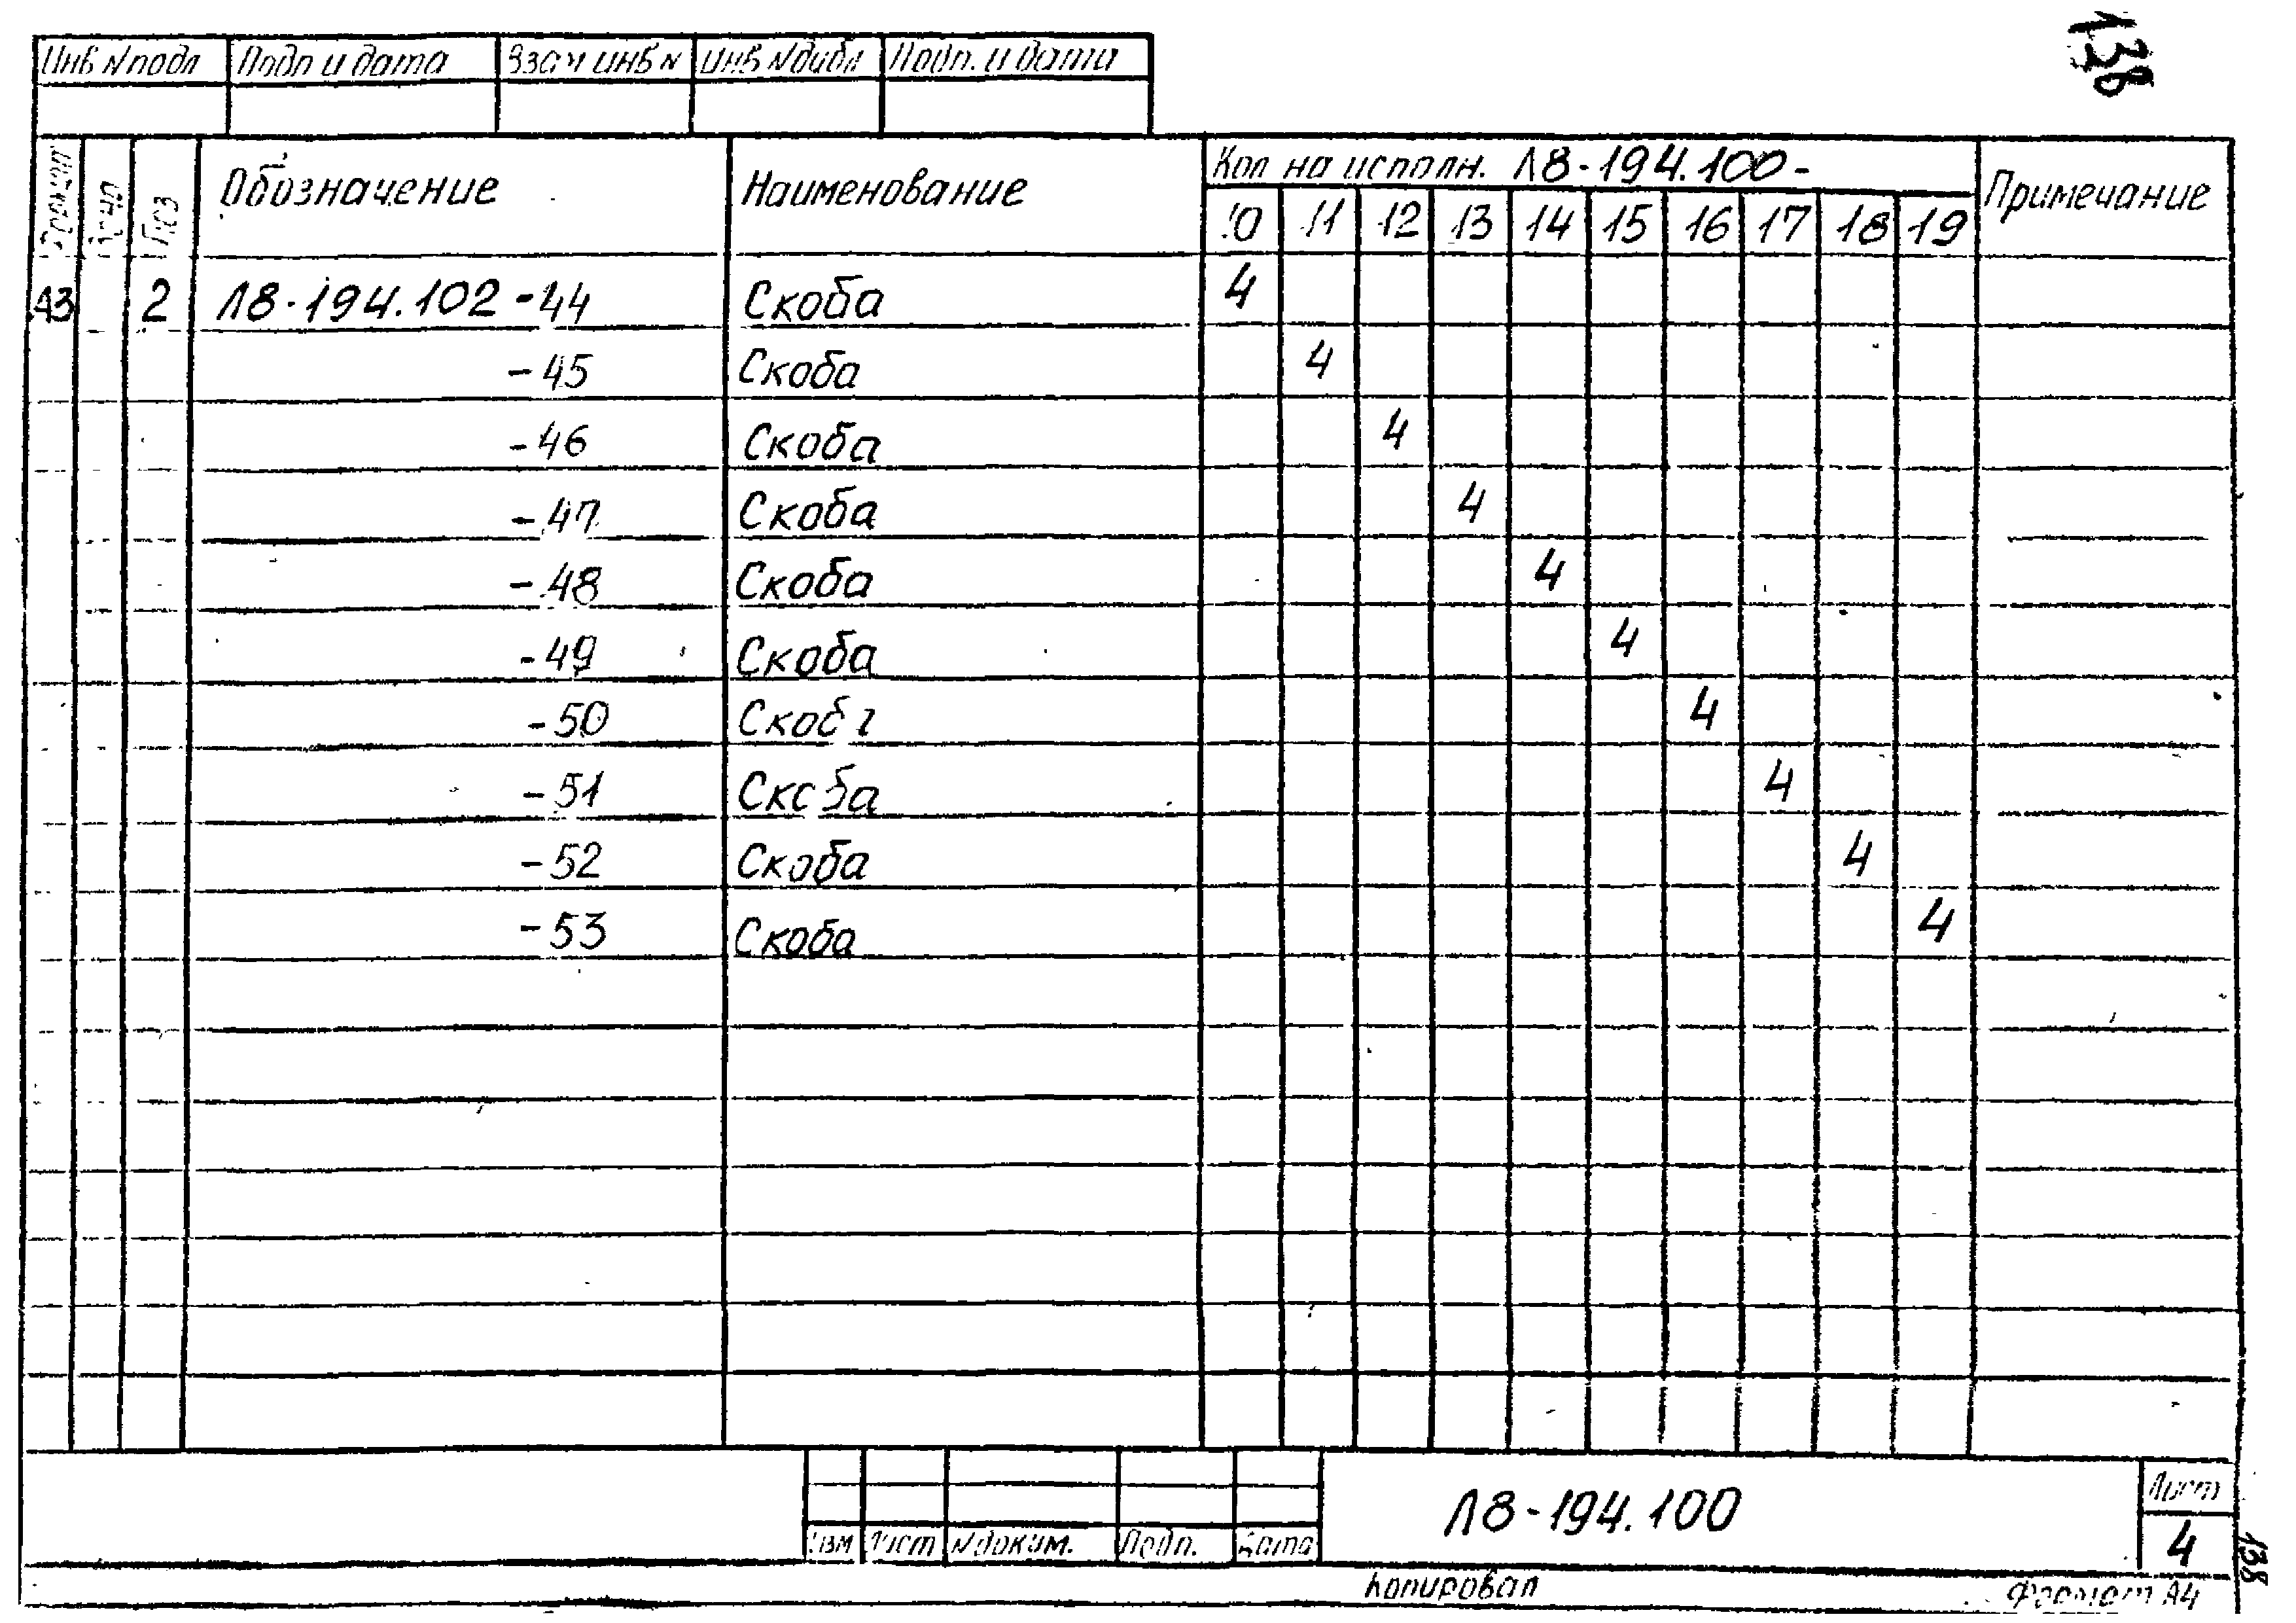 138
Инв N подл Подп и дата Взам инв N Инв N дубл Подп. и дата
Формат Зона Поз Обозначение Наименование Кол на исполн. Л8-194.100- Примечание
10 11 12 13 14 15 16 17 18 19
А3 2 Л8-194.102-44 Скоба 4
-45 Скоба 4
-46 Скоба 4
-47 Скоба 4
-48 Скоба 4
-49 Скоба 4
-50 Скоба 4
-51 Скоба 4
-52 Скоба 4
-53 Скоба 4
Л8-194.100 Лист
Изм Лист N докум. Подп. Дата 4
138
Копировал Формат А4